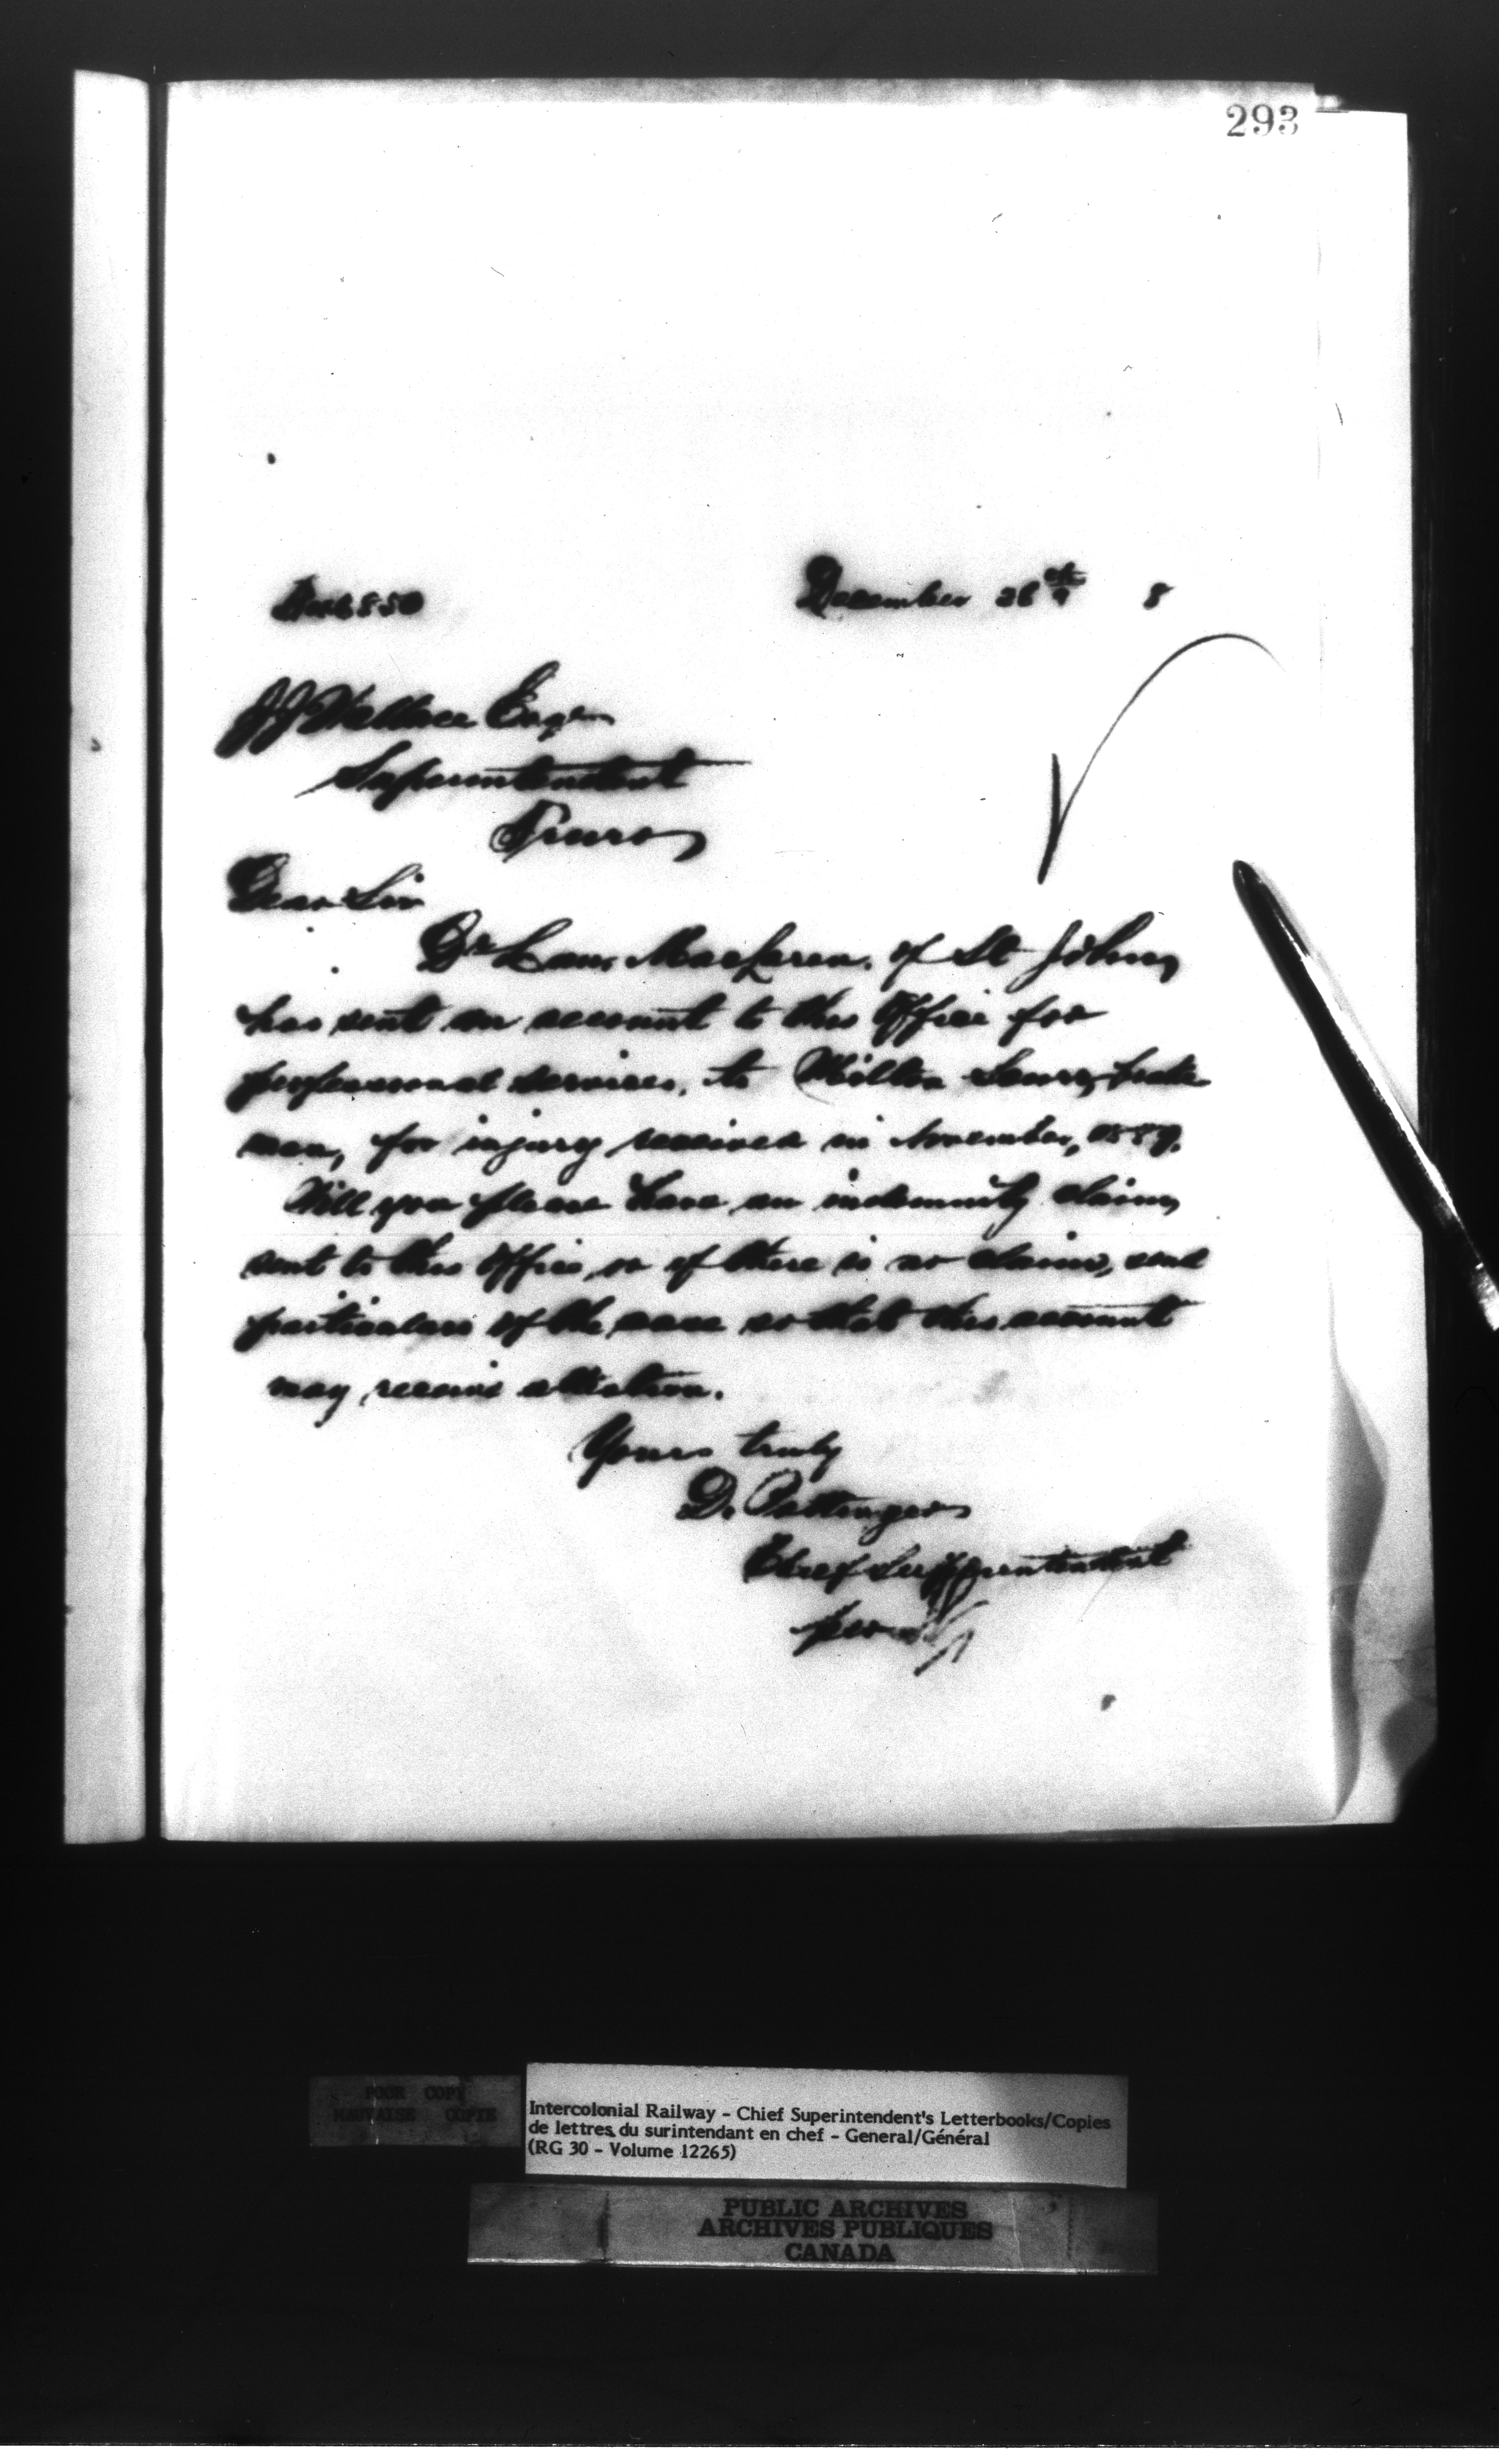 293
December 26th 8
J J Wallace Esqr
Superintendent
Truro
Dear Sir
Dr MacLaren. of St John
has sent an account to this Office for
professional services, to Milton brake
man, for injury received in November, 1887,
Will you please have an indemnity claim
sent to this Office, or if there is no claim, send
particulars of the case so that this account
may receive attention.
Yours truly
D. Pottinger
Chief Superintendent
per
POOR COPY
MAUVAISE COPIE
Intercolonial Railway - Chief Superintendent's Letterbooks/Copies
de lettres du surintendant en chef - General/Général
(RG 30 - Volume 12265)
PUBLIC ARCHIVES
ARCHIVES PUBLIQUES
CANADA